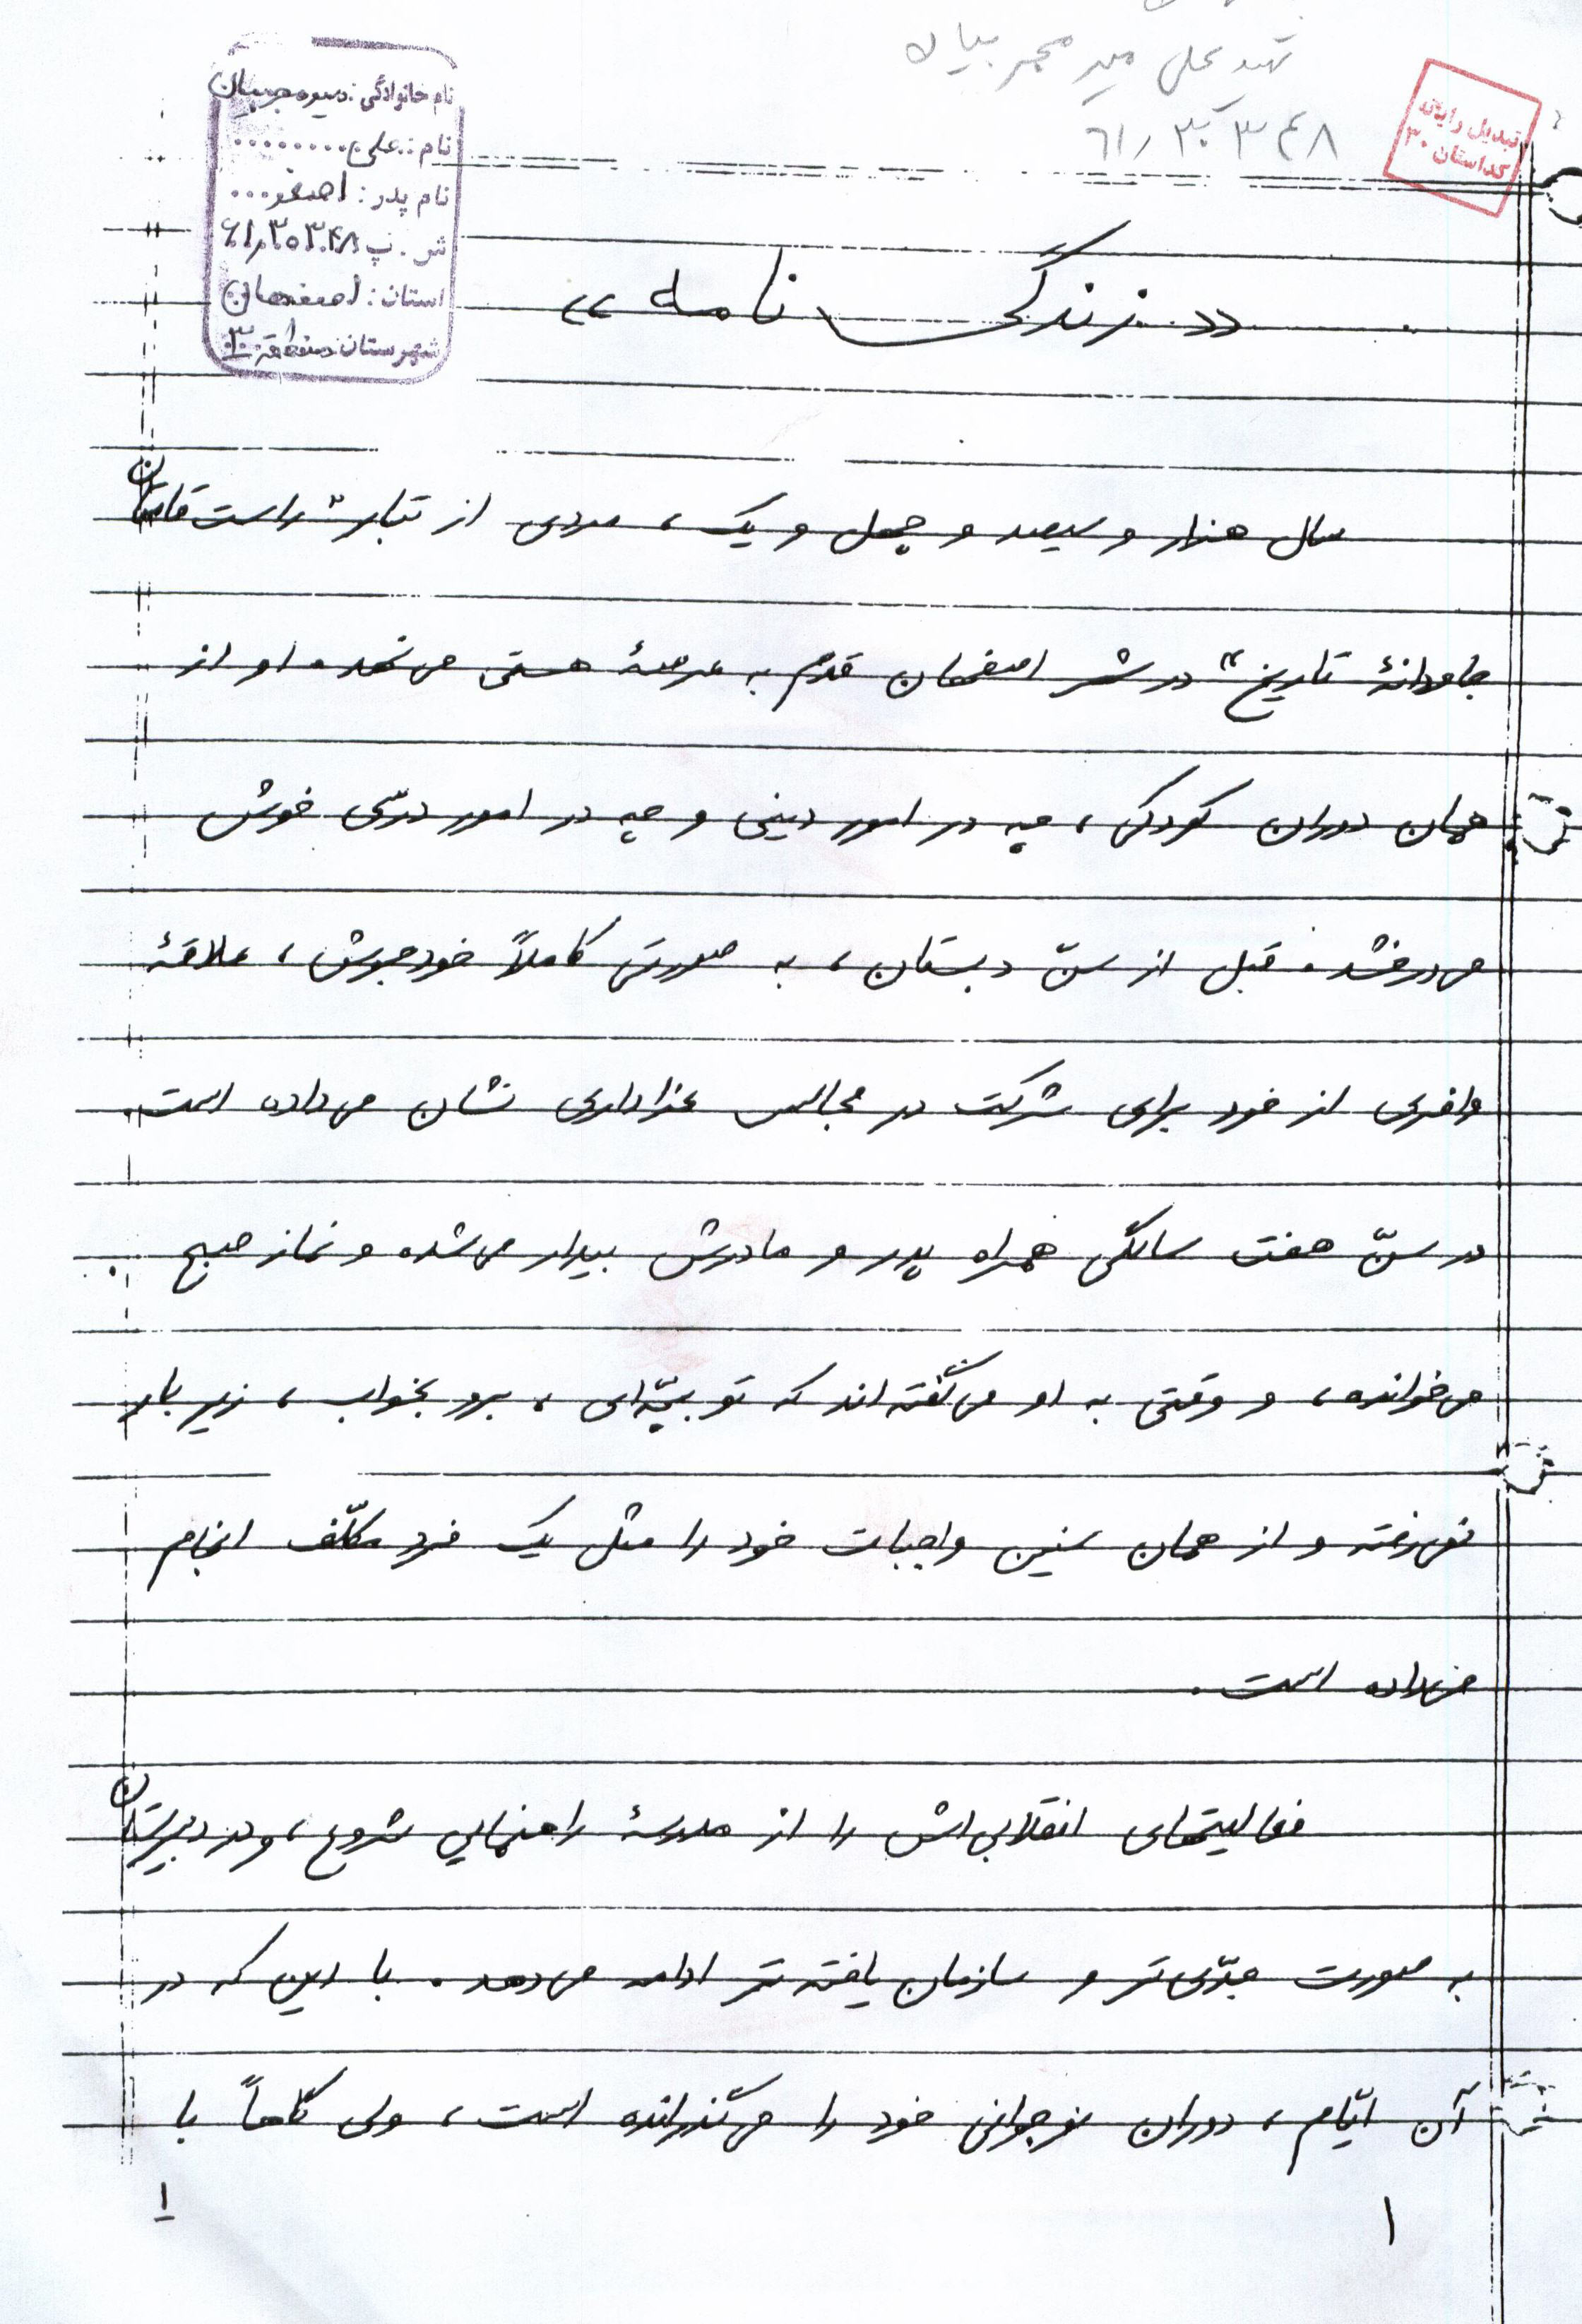 شهید علی میر مجربیان
۶۱٫۳۰۳۴۸
تبدیل رایانه
کد استان ۳۰
نام خانوادگی: میرمجربیان
نام: علی
نام پدر: اصغر
ش. پ ۶۱٫۳۰۳۴۸
استان: اصفهان
شهرستان: منطقه ۳
«زندگی نامه»
سال هزار و سیصد و چهل و یک، مردی از تبار "راست قامتان
جاودانهٔ تاریخ" در شهر اصفهان قدم به عرصهٔ هستی می‌نهد. او از
همان دوران کودکی، چه در امور دینی و چه در امور درسی خوش
می‌درخشد. قبل از سنّ دبستان، به صورتی کاملاً خودجوش، علاقهٔ
وافری از خود برای شرکت در مجالس عزاداری نشان می‌داده است.
در سنّ هفت سالگی همراه پدر و مادرش بیدار می‌شده و نماز صبح
می‌خوانده، و وقتی به او می‌گفته‌اند که تو بچّه‌ای، برو بخواب، زیر بار
نمی‌رفته و از همان سنین واجبات خود را مثل یک فرد مکلّف انجام
می‌داده است.
فعالیتهای انقلابی‌اش را از مدرسهٔ راهنمایی شروع، و در دبیرستان
به صورت جدّی‌تر و سازمان یافته‌تر ادامه می‌دهد. با این که در
آن ایّام، دوران نوجوانی خود را می‌گذرانده است، ولی گاهاً با
۱
۱